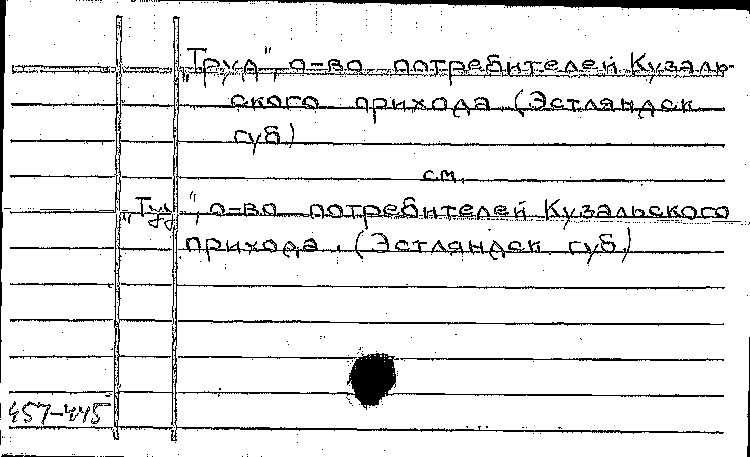 „Труд“, о-во потребителей Кузаль-
ского прихода (Эстляндск
губ)
см.
о-во потребителей Кузальского
прихода. (Эстляндск губ.)
457-445